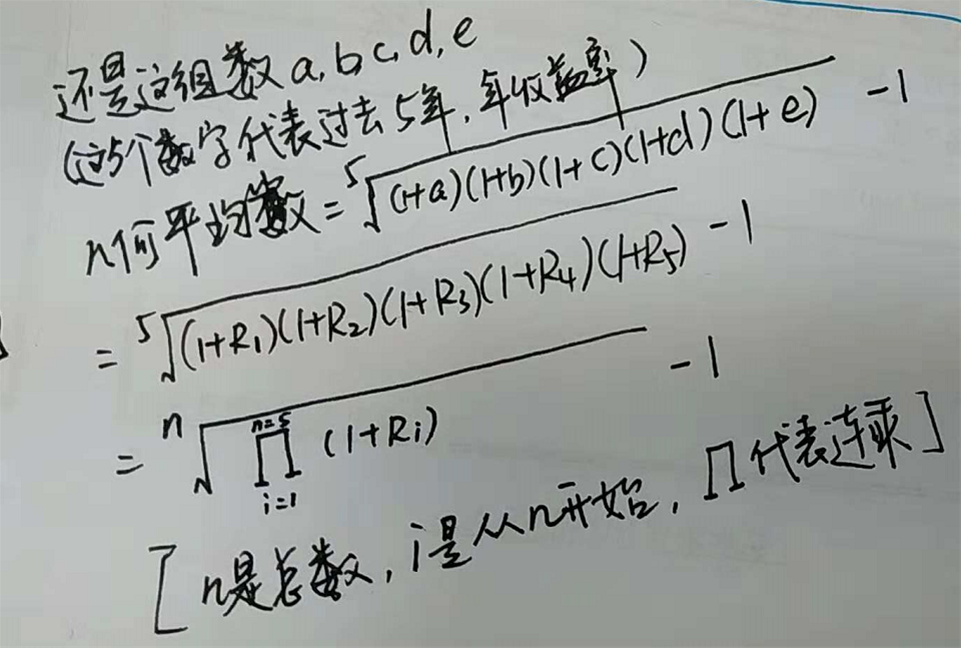 还是这组数 a, b, c, d, e
(这5个数字代表过去5年, 年收益率)
几何平均数 = ⁵√(1+a)(1+b)(1+c)(1+d)(1+e) -1
= ⁵√(1+R₁)(1+R₂)(1+R₃)(1+R₄)(1+R₅) -1
= ⁿ√∏ (1+Ri) -1
n=5
i=1
[n是总数, i是从n开始, ∏代表连乘]